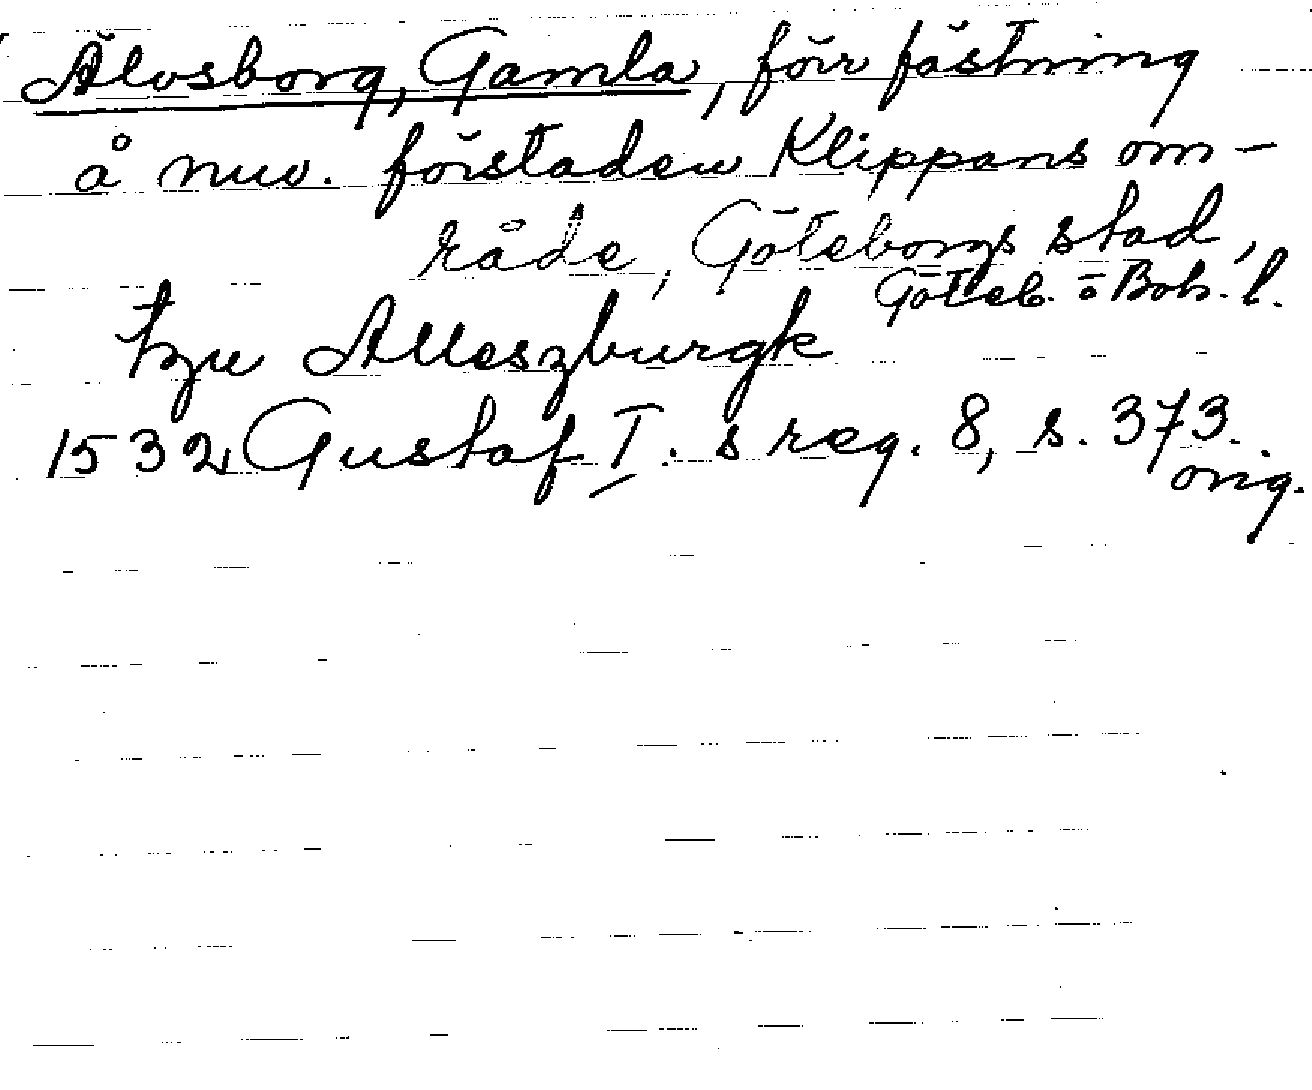 Älvsborg, Gamla, förr fästning
å nuv. förstaden Klippans om-
råde, Göteborgs stad,
Göteb. o Boh. l.
tzu Alleszburgk
1532 Gustaf I. s reg. 8, s. 373.
orig.